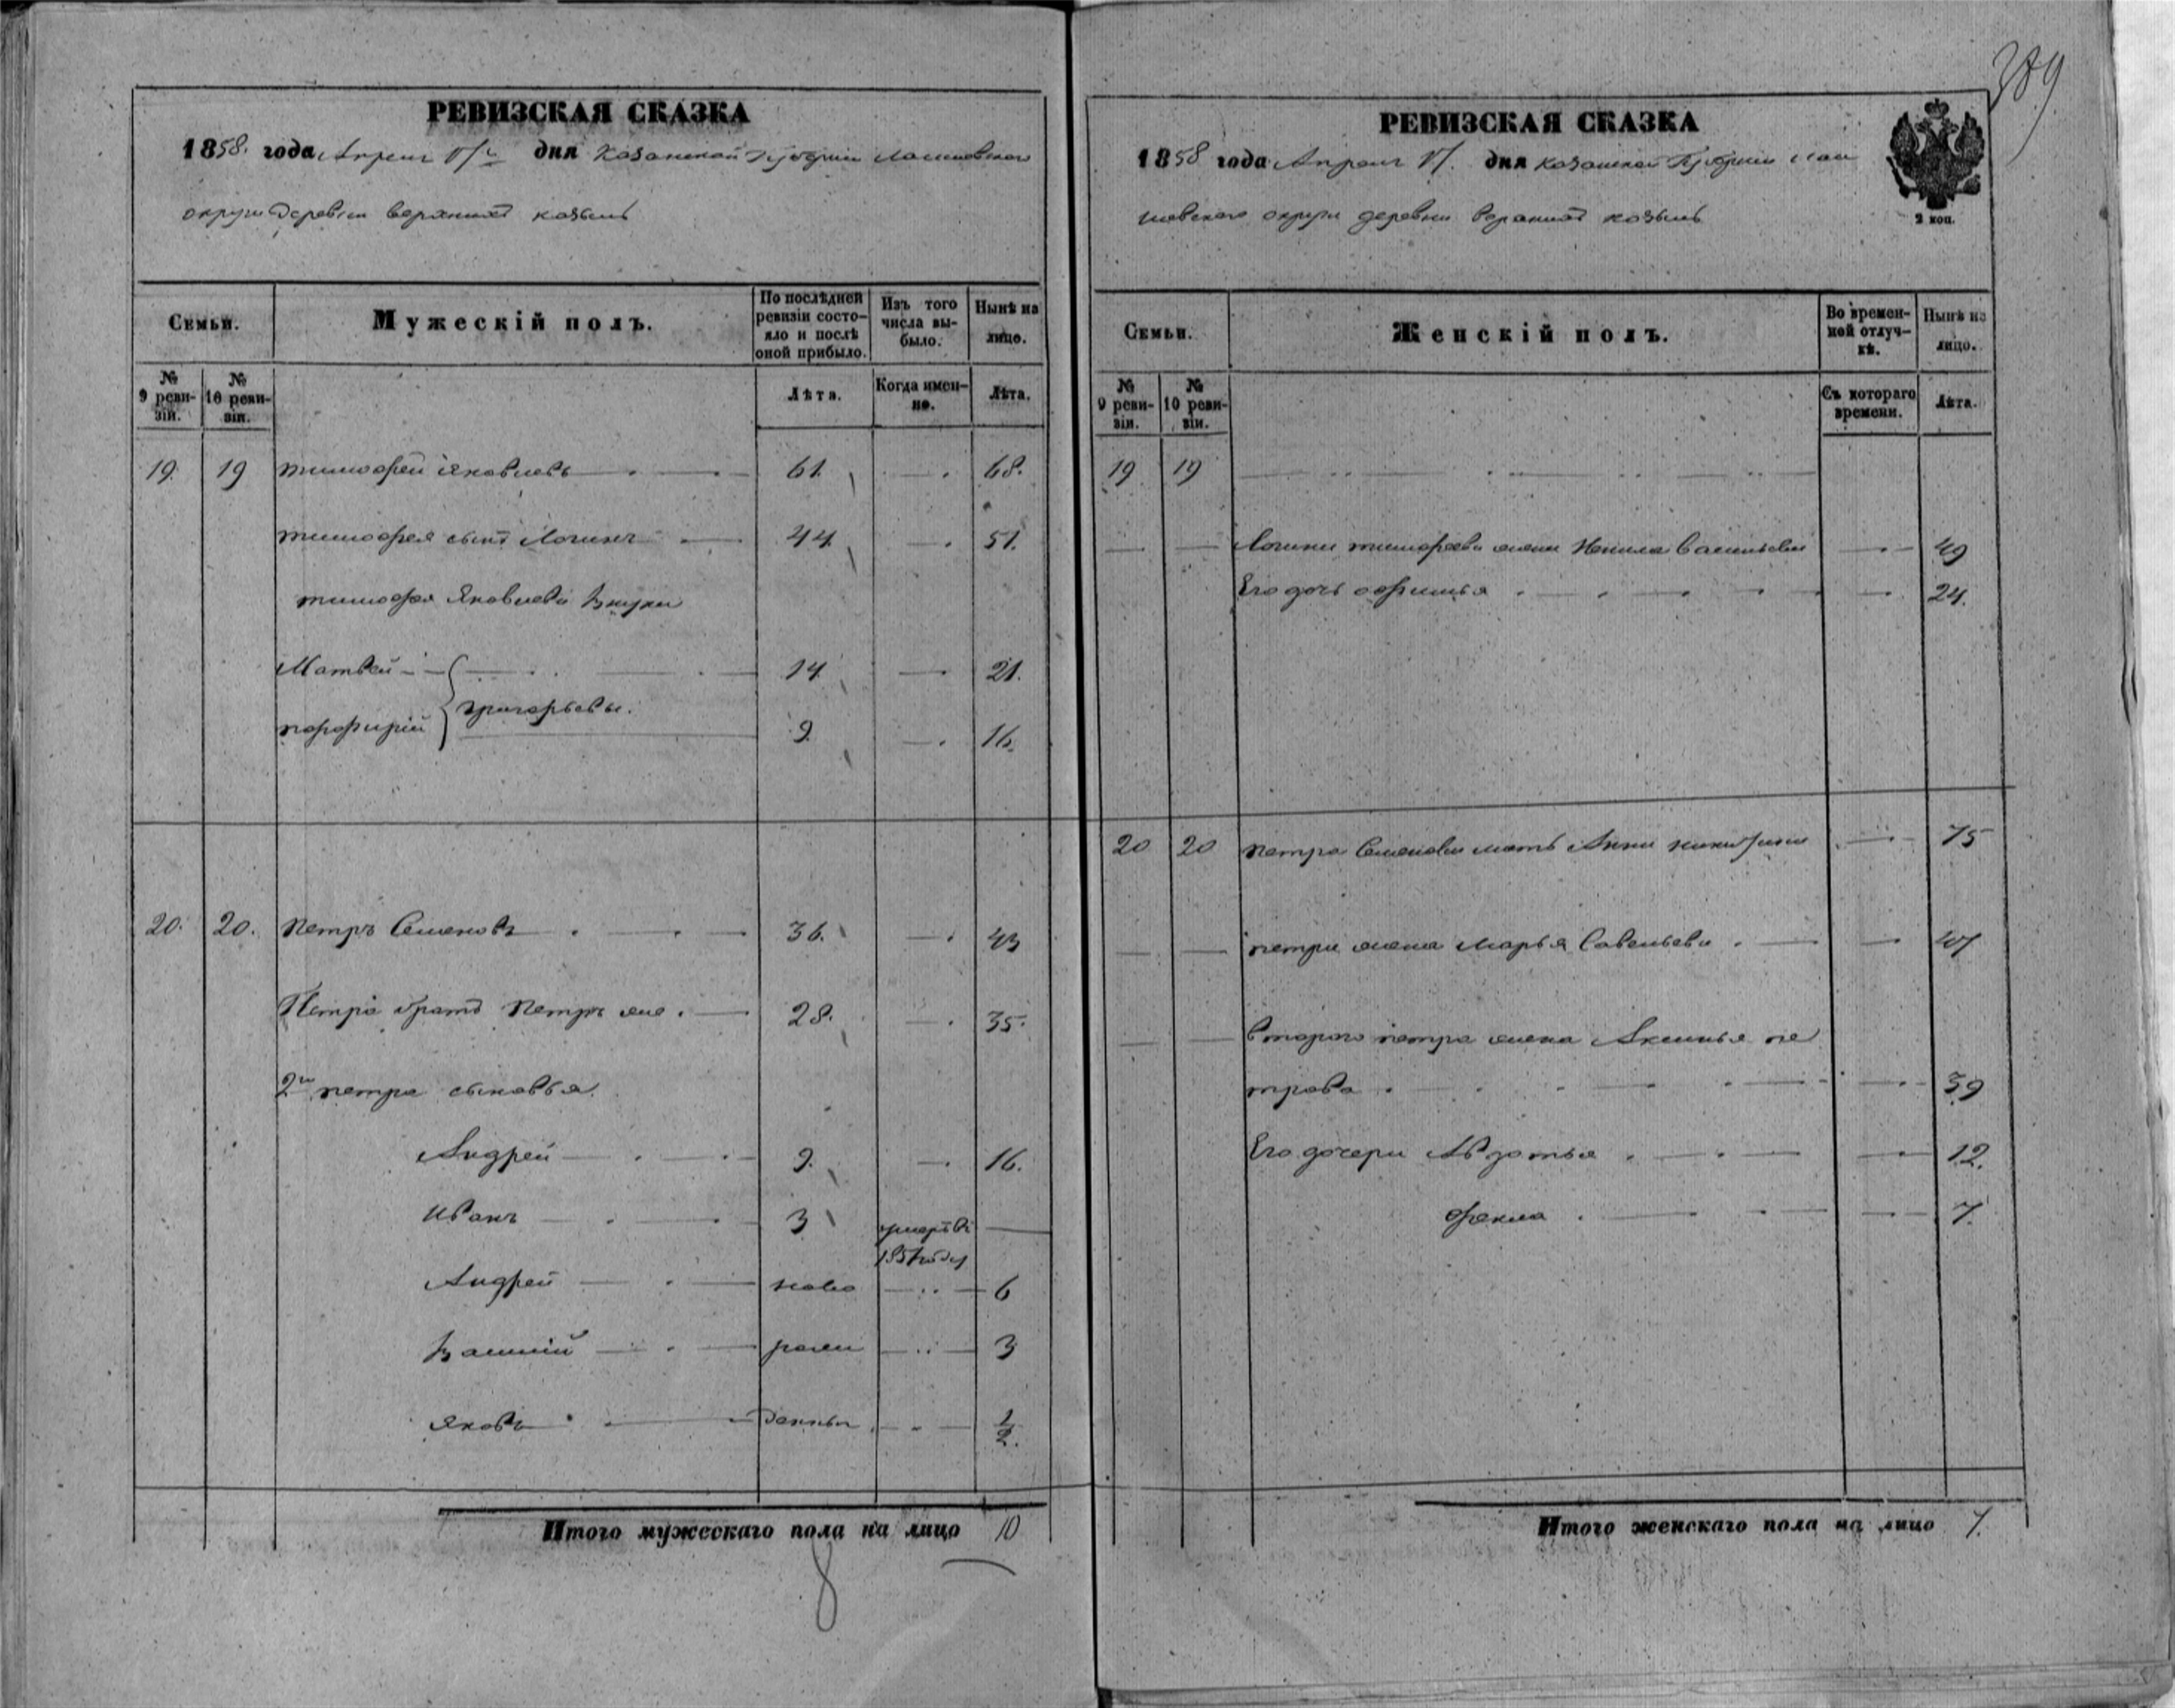 389
РЕВИЗСКАЯ СКАЗКА
1858 года Апреля дня Казанской Губернии Лаишевскаго
округи деревни верхнихъ
Семьи.
Мужескій полъ.
По послѣдней ревизіи состояло и послѣ оной прибыло.
Изъ того числа выбыло.
Нынѣ на лицо.
№ 9 ревизіи.
№ 10 ревизіи.
Лѣта.
Когда именно.
Лѣта.
19. 19 тимофей яковлевъ 61. 68.
тимофея сынъ Логинъ 44 51.
тимофея Яковлева внуки
Матвей 14 21.
григорьевы.
порфирій 9. 16.
20. 20. Петръ Семеновъ 36. 43
Петра братъ Петръ же 28. 35.
2го петра сыновья.
Андрей 9. 16.
Иванъ 3 умеръ въ
году
Андрей ново 6
Василій рожд 3
Яковъ денны 1/2.
Итого мужескаго пола на лицо 10
8
РЕВИЗСКАЯ СКАЗКА
1858 года Апреля дня Казанской Губернии Лаи
шевскаго округи деревни верхнихъ
2 коп.
Семьи.
Женскій полъ.
Во временной отлучкѣ.
Нынѣ на лицо.
№ 9 ревизіи.
№ 10 ревизіи.
Съ котораго времени.
Лѣта.
19 19
Логина тимофеева жена Ненила Васильева 49
Его дочь Офимья 24.
20 20 петра Семенова мать Анна никитина 75
петра жена Марья Савельева 47
Втораго петра жена Аксинья пе
трова 39
Его дочери Авдотья 12.
Фекла 7.
Итого женскаго пола на лицо 7.